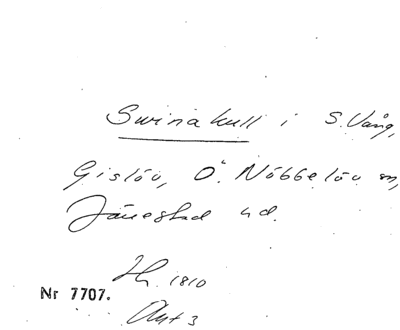 Swinakull i S. Vång,
Gislöv, Ö. Nöbbelöv sn,
Järrestad hd.
1810
Nr 7707.
Akt 3